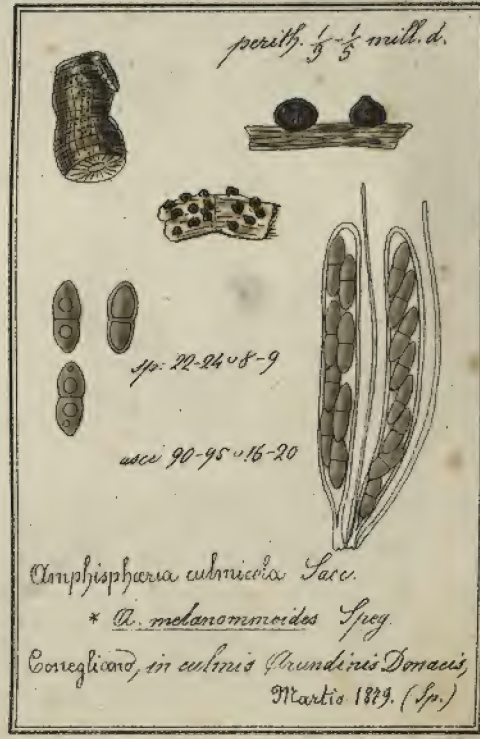 perith. 1/9 - 1/5 mill. d.
sp: 22-24 ᴗ 8-9
asci 90-95 ᴗ 16-20
Amphisphæria culmicola Sacc.
* A. melanommoides Speg.
Conegliano, in culmis Arundinis Donacis,
Martio 1879. (Sp.)